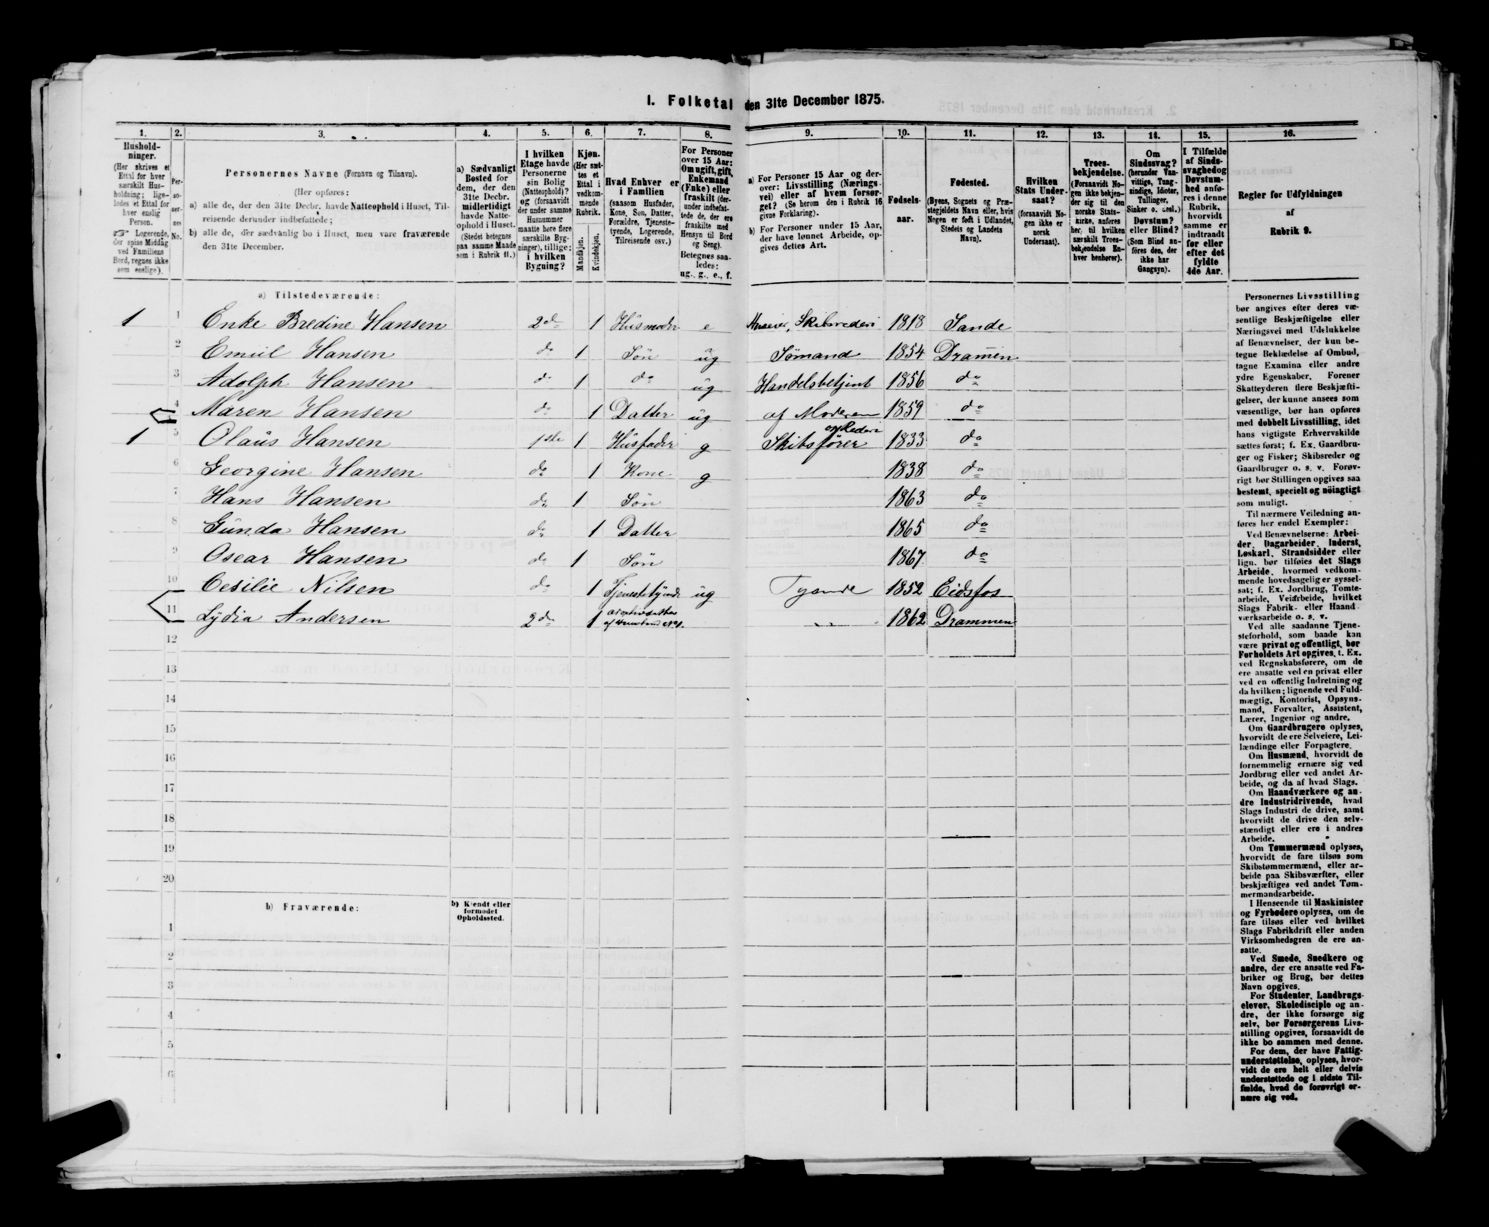 I. Folketal den 31te December 1875.
1. 2. 3. 4. 5. 6. 7. 8. 9. 10. 11. 12. 13. 14. 15. 16.
Hushold-
ninger.
(Her skrives et
Ettal for hver
særskilt Hus-
holdning; lige-
ledes et Ettal for
hver enslig
Person.
Logerende,
der spise Middag
ved Familiens
Bord, regnes ikke
som enslige).
Per-
so-
ner-
nes
No.
Personernes Navne (Fornavn og Tilnavn).
(Her opføres:
a) alle de, der den 31te Decbr. havde Natteophold i Huset, Til-
reisende derunder indbefattede;
b) alle de, der sædvanlig bo i Huset, men vare fraværende
den 31te December.
a) Sædvanligt
Bosted for
dem, der den
31te Decbr.
midlertidigt
havde Natte-
ophold i Huset.
(Stedet betegnes
paa samme Maade
som i Rubrik 11.)
I hvilken
Etage havde
Personerne
sin Bolig
(Natteophold)?
og (forsaavidt
der under samme
Husnummer
maatte høre flere
særskilte Byg-
ninger), tillige:
i hvilken
Bygning?
Kjøn.
(Her sæt-
tes et
Ettal i
vedkom-
mende
Rubrik.
Mandkjøn.
Kvindekjøn.
Hvad Enhver er
i Familien
(saasom Husfader,
Kone, Søn, Datter,
Forældre, Tjeneste-
tyende, Logerende,
Tilreisende osv.)
For Personer
over 15 Aar:
Om ugift, gift,
Enkemand
(Enke) eller
fraskilt (der-
under indbefat-
tede de, der ere
fraskilte med
Hensyn til Bord
og Seng).
Betegnes saa-
ledes:
ug., g., e., f.
a) For Personer 15 Aar og der-
over: Livsstilling (Nærings-
vei) eller af hvem forsør-
get? (Se herom den i Rubrik 16
givne Forklaring).
b) For Personer under 15 Aar,
der have lønnet Arbeide, op-
gives dettes Art.
Fødsels-
aar.
Fødested.
(Byens, Sognets og Præ-
stegjeldets Navn eller, hvis
Nogen er født i Udlandet,
Stedets og Landets
Navn).
Hvilken
Stats Under-
saat?
(forsaavidt No-
gen ikke er
norsk
Undersaat).
Troes-
bekjendelse.
(Forsaavidt No-
gen ikke bekjen-
der sig til den
norske Stats-
kirke, anføres
her, til hvilken
særskilt Troes-
bekjendelse En-
hver henhører).
Om
Sindssvag?
(herunder Van-
vittige, Tung-
sindige, Idioter,
Tullinger,
Sinker o. desl.)
Døvstum?
eller Blind?
(Som Blind an-
føres den, der
ikke har
Gangsyn).
I Tilfælde
af Sinds-
svaghed og
Døvstum-
hed anfø-
res i denne
Rubrik,
hvorvidt
samme er
indtraadt
før eller
efter det
fyldte
4de Aar.
Regler for Udfyldningen
af
Rubrik 9.
a) Tilstedeværende:
1 1 Enke Bredine Hansen 2d 1 Husmoder e Skibsrederi 1818 Sande
2 Emiil Hansen do 1 Søn ug Sømand 1854 Dramen
3 Adolph Hansen do 1 do ug Handelsbetjent 1856 do
4 Maren Hansen do 1 Datter ug af Moderen 1859 do
1 5 Olaus Hansen 1ste 1 Husfader g Skibsfører og Rederi 1833 do
6 Georgine Hansen do 1 Kone g 1838 do
7 Hans Hansen do 1 Søn 1863 do
8 Gunda Hansen do 1 Datter 1865 do
9 Oscar Hansen do 1 Søn 1867 do
10 Cesilie Nilsen do 1 Tjenestetyende ug Tyende 1852 Eidsfos
11 Lydia Andersen 2d 1 1862 Drammen
12
13
14
15
16
17
18
19
20
b) Fraværende:
b) Kjendt eller
formodet
Opholdssted.
1
2
3
4
5
6
Personernes Livsstilling
bør angives efter deres væ-
sentlige Beskjæftigelse eller
Næringsvei med Udelukkelse
af Benævnelser, der kun be-
tegne Bekledelse af Ombud,
tagne Examina eller andre
ydre Egenskaber. Forener
Skatteyderen flere Beskjæfti-
gelser, der kunne ansees som
væsentlige, bør han opføres
med dobbelt Livsstilling, idet
hans vigtigste Erhvervskilde
sættes først; f. Ex. Gaardbru-
ger og Fisker; Skibsreder og
Gaardbruger o. s. v. Forøv-
rigt bør Stillingen opgives saa
bestemt, specielt og nøiagtigt
som muligt.
Til nærmere Veiledning an-
føres her endel Exempler:
Ved Benævnelserne: Arbei-
der, Dagarbeider, Inderst,
Løskarl, Strandsidder eller
lign. bør tilføies det Slags
Arbeide, hvormed vedkom-
mende hovedsagelig er syssel-
sat; f. Ex. Jordbrug, Tomte-
arbeide, Veiarbeide, hvilket
Slags Fabrik- eller Haand-
værksarbeide o. s. v.
Ved alle saadanne Tjene-
steforhold, som baade kan
være privat og offentligt, bør
Forholdets Art opgives, t. Ex.
ved Regnskabsførere, om de
ere ansatte ved en privat eller
ved en offentlig Indretning og
da hvilken; lignende ved Fuld-
mægtig, Kontorist, Opsyns-
mand, Forvalter, Assistent,
Lærer, Ingeniør og andre.
Om Gaardbrugere oplyses,
hvorvidt de ere Selveiere, Lei-
lændinge eller Forpagtere.
Om Husmænd, hvorvidt de
fornemmelig ernære sig ved
Jordbrug eller ved andet Ar-
beide, og da af hvad Slags.
Om Haandværkere og an-
dre Industridrivende, hvad
Slags Industri de drive, samt
hvorvidt de drive den selv-
stændigt eller ere i andres
Arbeide.
Om Tømmermænd oplyses,
hvorvidt de fare tilsøs som
Skibstømmermænd, eller ar-
beide paa Skibsværfter, eller
beskjæftiges ved andet Tøm-
mermandsarbeide.
I Henseende til Maskinister
og Fyrbødere oplyses, om de
fare tilsøs eller ved hvilket
Slags Fabrikdrift eller anden
Virksomhedsgren de ere an-
satte.
Ved Smede, Snedkere og
andre, der ere ansatte ved Fa-
briker og Brug, bør dettes
Navn opgives.
For Studenter, Landbrugs-
elever, Skoledisciple og an-
dre, der ikke forsørge sig
selv, bør Forsørgerens Livs-
stilling opgives, forsaavidt de
ikke bo sammen med denne.
For dem, der have Fattig-
understøttelse, oplyses, hvor-
vidt de ere helt eller delvis
understøttede og i sidste Til-
fælde, hvad de forøvrigt er-
nære sig ved.